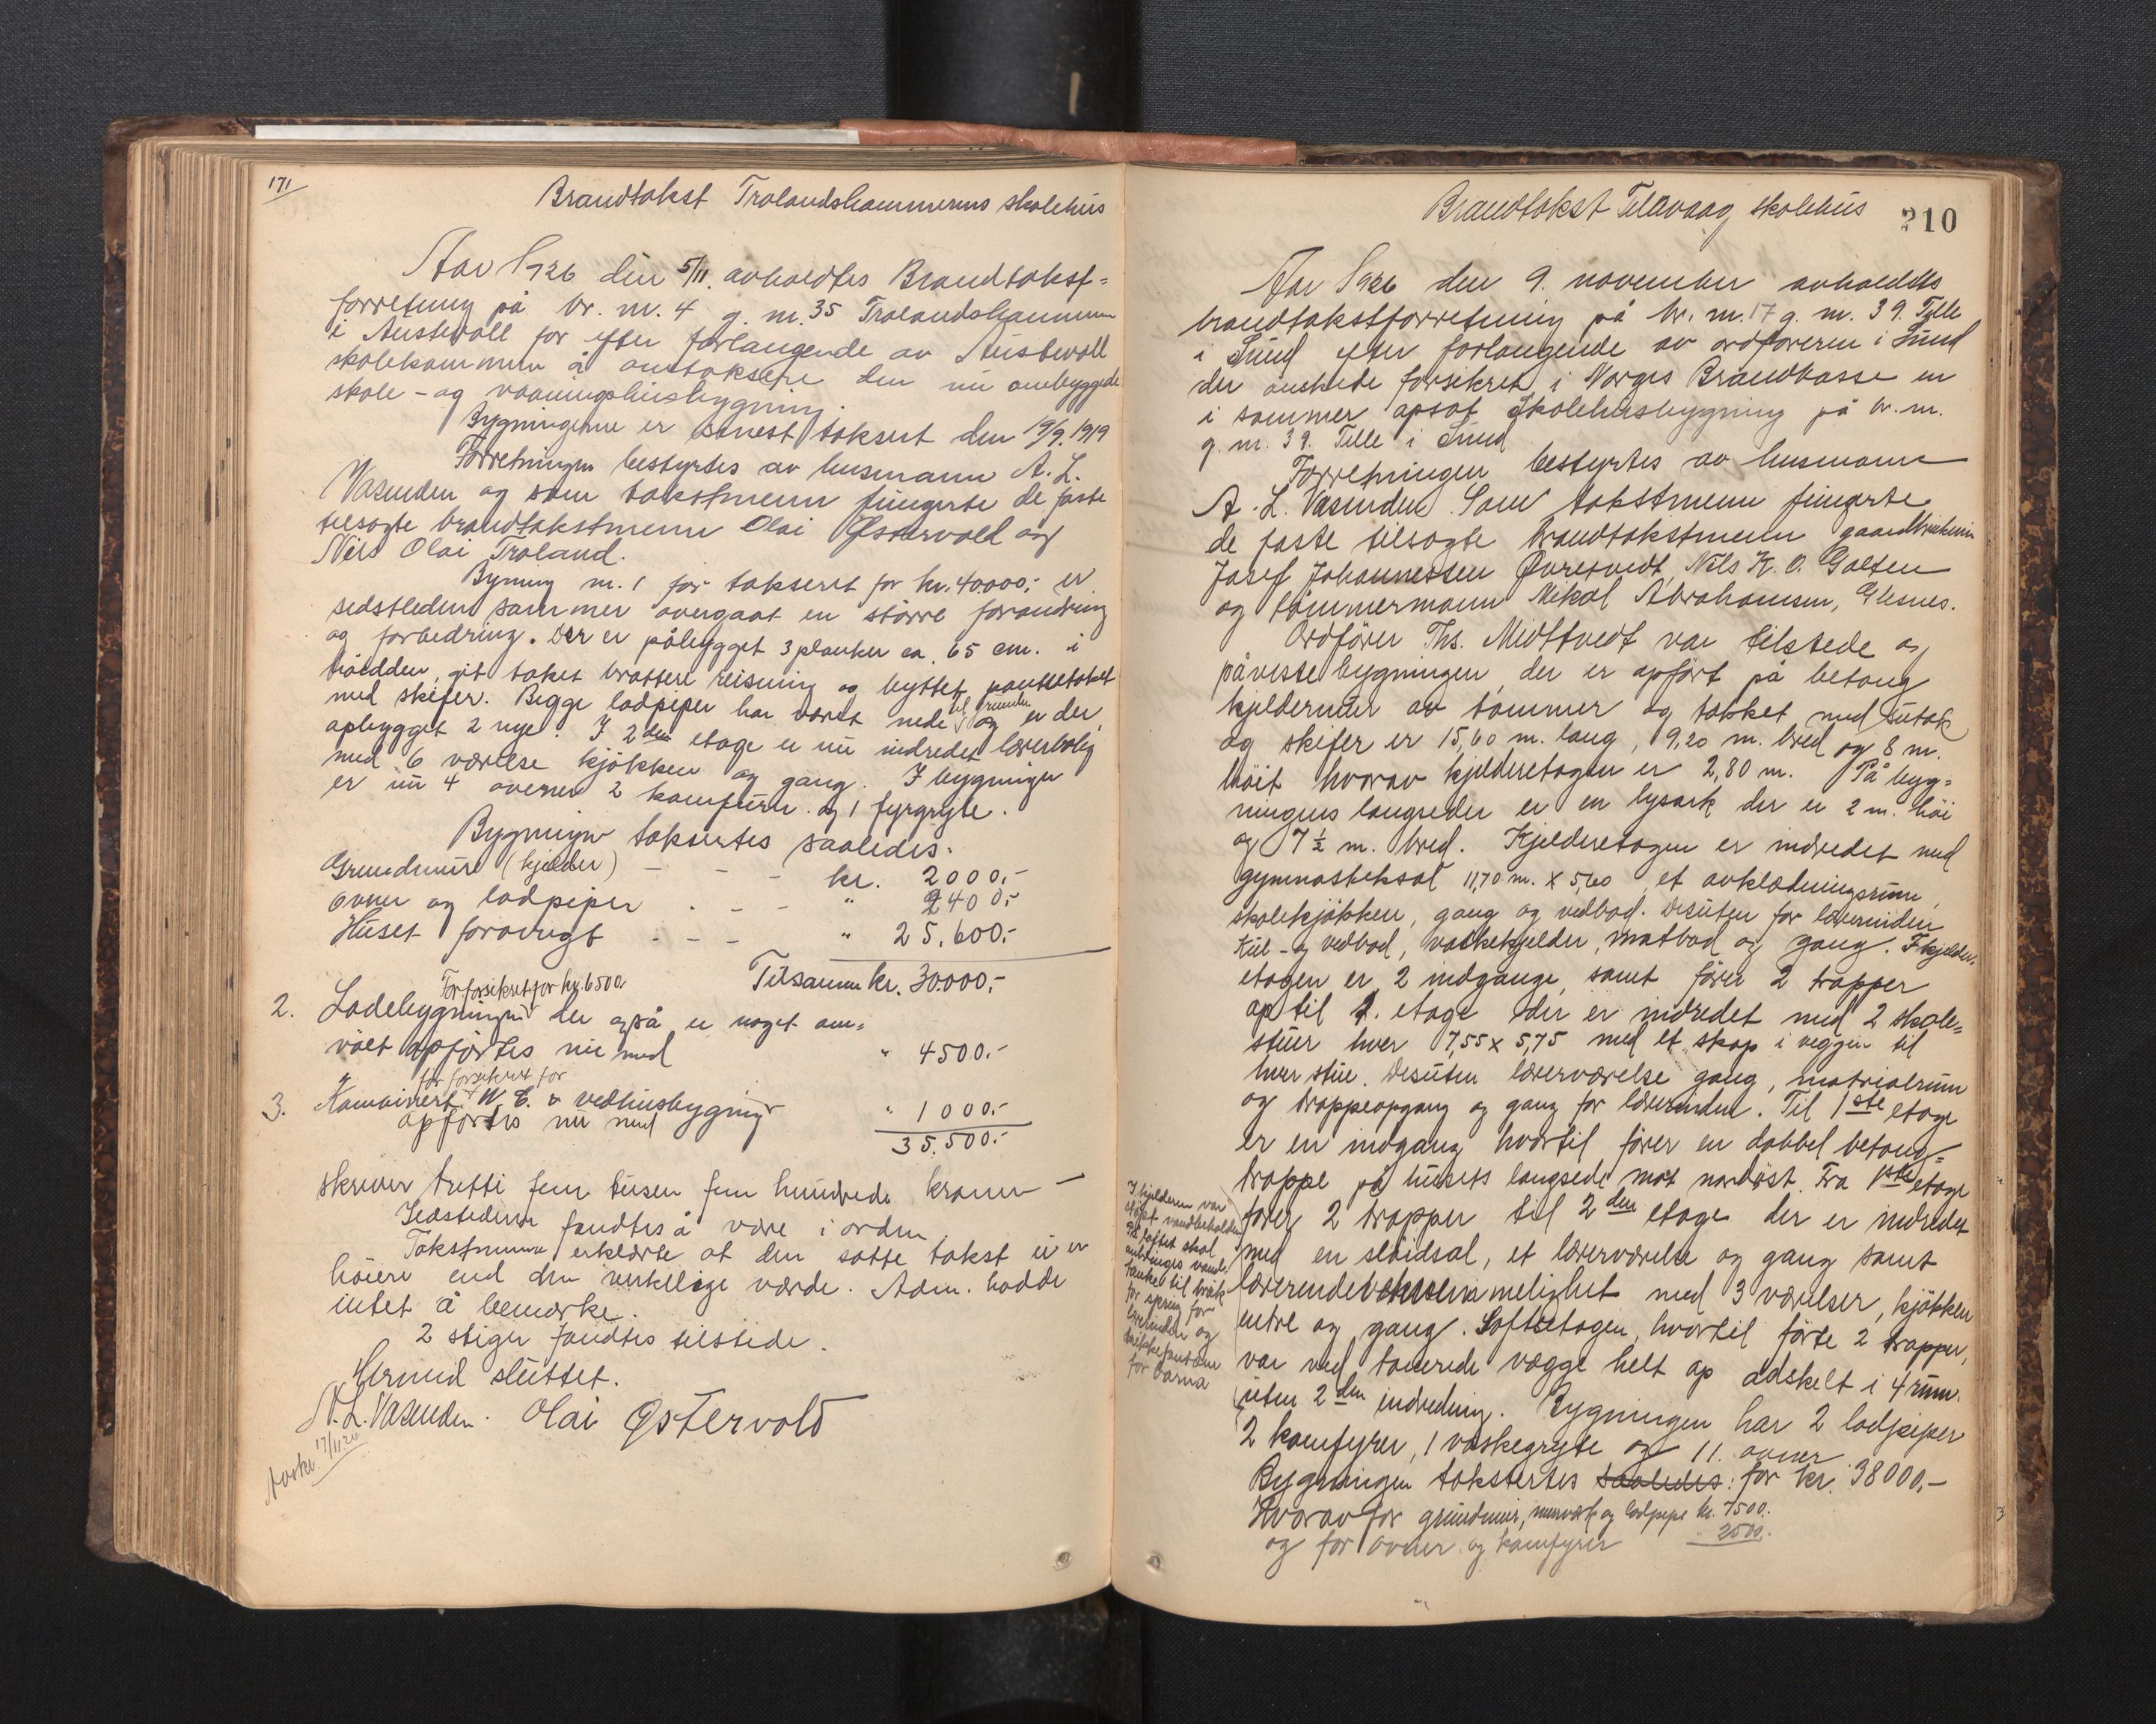 171
Brandtakst Trolandshammerens skolehus
Aar 1926 den 5/11. avholdtes Brandtakst-
forretning på br. nr. 4 g. nr. 35 Trolandshammeren
i Austevoll for efter forlangende av Austevoll
skolekommune å omtaksere den nu ombyggede
skole- og vaaningshusbygning.
Bygningerne er senest taksert den 19/9. 1919
Forretningen bestyrtes av husmann A. L.
Vasenden og som takstmenn fungerte de faste
tilsagte brandtakstmenn Olai Østervold og
Nils Olai Troland.
Bygning nr. 1 før takseret for kr. 40000,- er
sidstleden sommer overgaat en större forandring
og forbedring. Der er påbygget 3 planker ca. 65 cm. i
höidden, git taket brattere reisning og byttet pannetaket
med skifer. Begge ladpiper har været nede til grunden og er der
opbygget 2 nye. I 2den etage er nu indredet lærerbolig
med 6 værelse kjökken og gang. I bygningen
er nu 4 ovener 2 komfurer og 1 fyrgryte.
Bygningen taksertes saaledes.
Grundmure (kjelder) - - - kr. 2000,-
ovner og ladpiper . - - " 2400,-
Huset forövrigt . - - " 25.600,-
Tilsammen kr. 30.000,-
Før forsikret for kr. 6500
2. Ladebygningen der også er noget om-
völt opførtes nu med " 4500.-
før forsikret for
3. Kombinert W. C. & vedhusbygning
opførtes nu med " 1000.-
35.500.-
skriver tretti fem tusen fem hundrede kroner
Ildstederne fandtes å være i orden
Takstmenn erklærte at den satte takst ei er
höiere end den virkelige værde. Adm. hadde
intet å bemærke.
2 stiger fandtes tilstede.
Hermed sluttet.
A. L. Vasenden. Olai Østervold
Avskr. 17/11 26
Brandtakst Telavaag skolehus 210
Aar 1926 den 9. november avholdtes
brandtakstforretning på br. nr. 17 g. nr. 39. Telle
i Sund efter forlangende av ordföreren i Sund
der önskede forsikret i Norges Brandkasse en
i sommer opsat skolehusbygning på br. nr.
g. nr. 39. Telle i Sund
Forretningen bestyrtes av husmann
A. L. Vasenden. Som takstmenn fungerte
de faste tilsagte brandtakstmenn gaardbrukerne
Josef Johannessen Øvretvedt, Nils K. O. Golten
og tömmermann Mikal Abrahamsen, Glesnes.
Ordförer Ths. Midttvedt var tilstede og
påviste bygningen, der er opfört på betong
kjeldermur av tömmer og tækket med sutak
og skifer er 15,60 m. lang, 9,20 m. bred og 8 m.
höit hvorav kjelderetagen er 2,80 m. På byg-
ningens langsider er en lysark der er 2 m. höi
og 7 ½ m. bred. Kjelderetagen er indredet med
gymnastiksal 11,70 m. x 5,60, et avklædningsrum,
skolekjökken, gang og vedbod. Desuten for lærerinden
kul- og vedbod, vaskekjelder, matbod og gang. I kjelder-
etagen er 2 indgange, samt förer 2 trapper
op til 1. etage der er indredet med 2 skole-
stuer hver 7,55 x 5,75 med et skap i veggen til
hver stue. Desuten lærerværelse gang, matrialrum
og trappeopgang og gang for lærerinden. Til 1ste etage
er en indgang hvortil förer en dobbel betong-
trappe på husets langside mot nordöst. Fra 1ste etage
förer 2 trapper til 2den etage der er indredet
med en slöidsal, et lærerværelse og gang samt
lærerinde met 3 værelser, kjökken
entre og gang. Loftsetagen, hvortil förte 2 trapper,
var ved tömrede vægge helt op adskelt i 4 rum.
uten 2den indredning. Bygningen har 2 ladpiper
2 komfyrer, 1 vaskegryte og 11. ovner
Bygningen takstertes saaledes: for kr. 38000,-
Hvorav for grundmur, murværk og ladpipe kr. 7500.
og for ovner og komfyrer " 2500.
I kjelderen var
støpt vandbeholder
På loftet skal
anbringes vand-
tanke til bruk
for spring for
lærerinden og
drikkefontæne
for barna